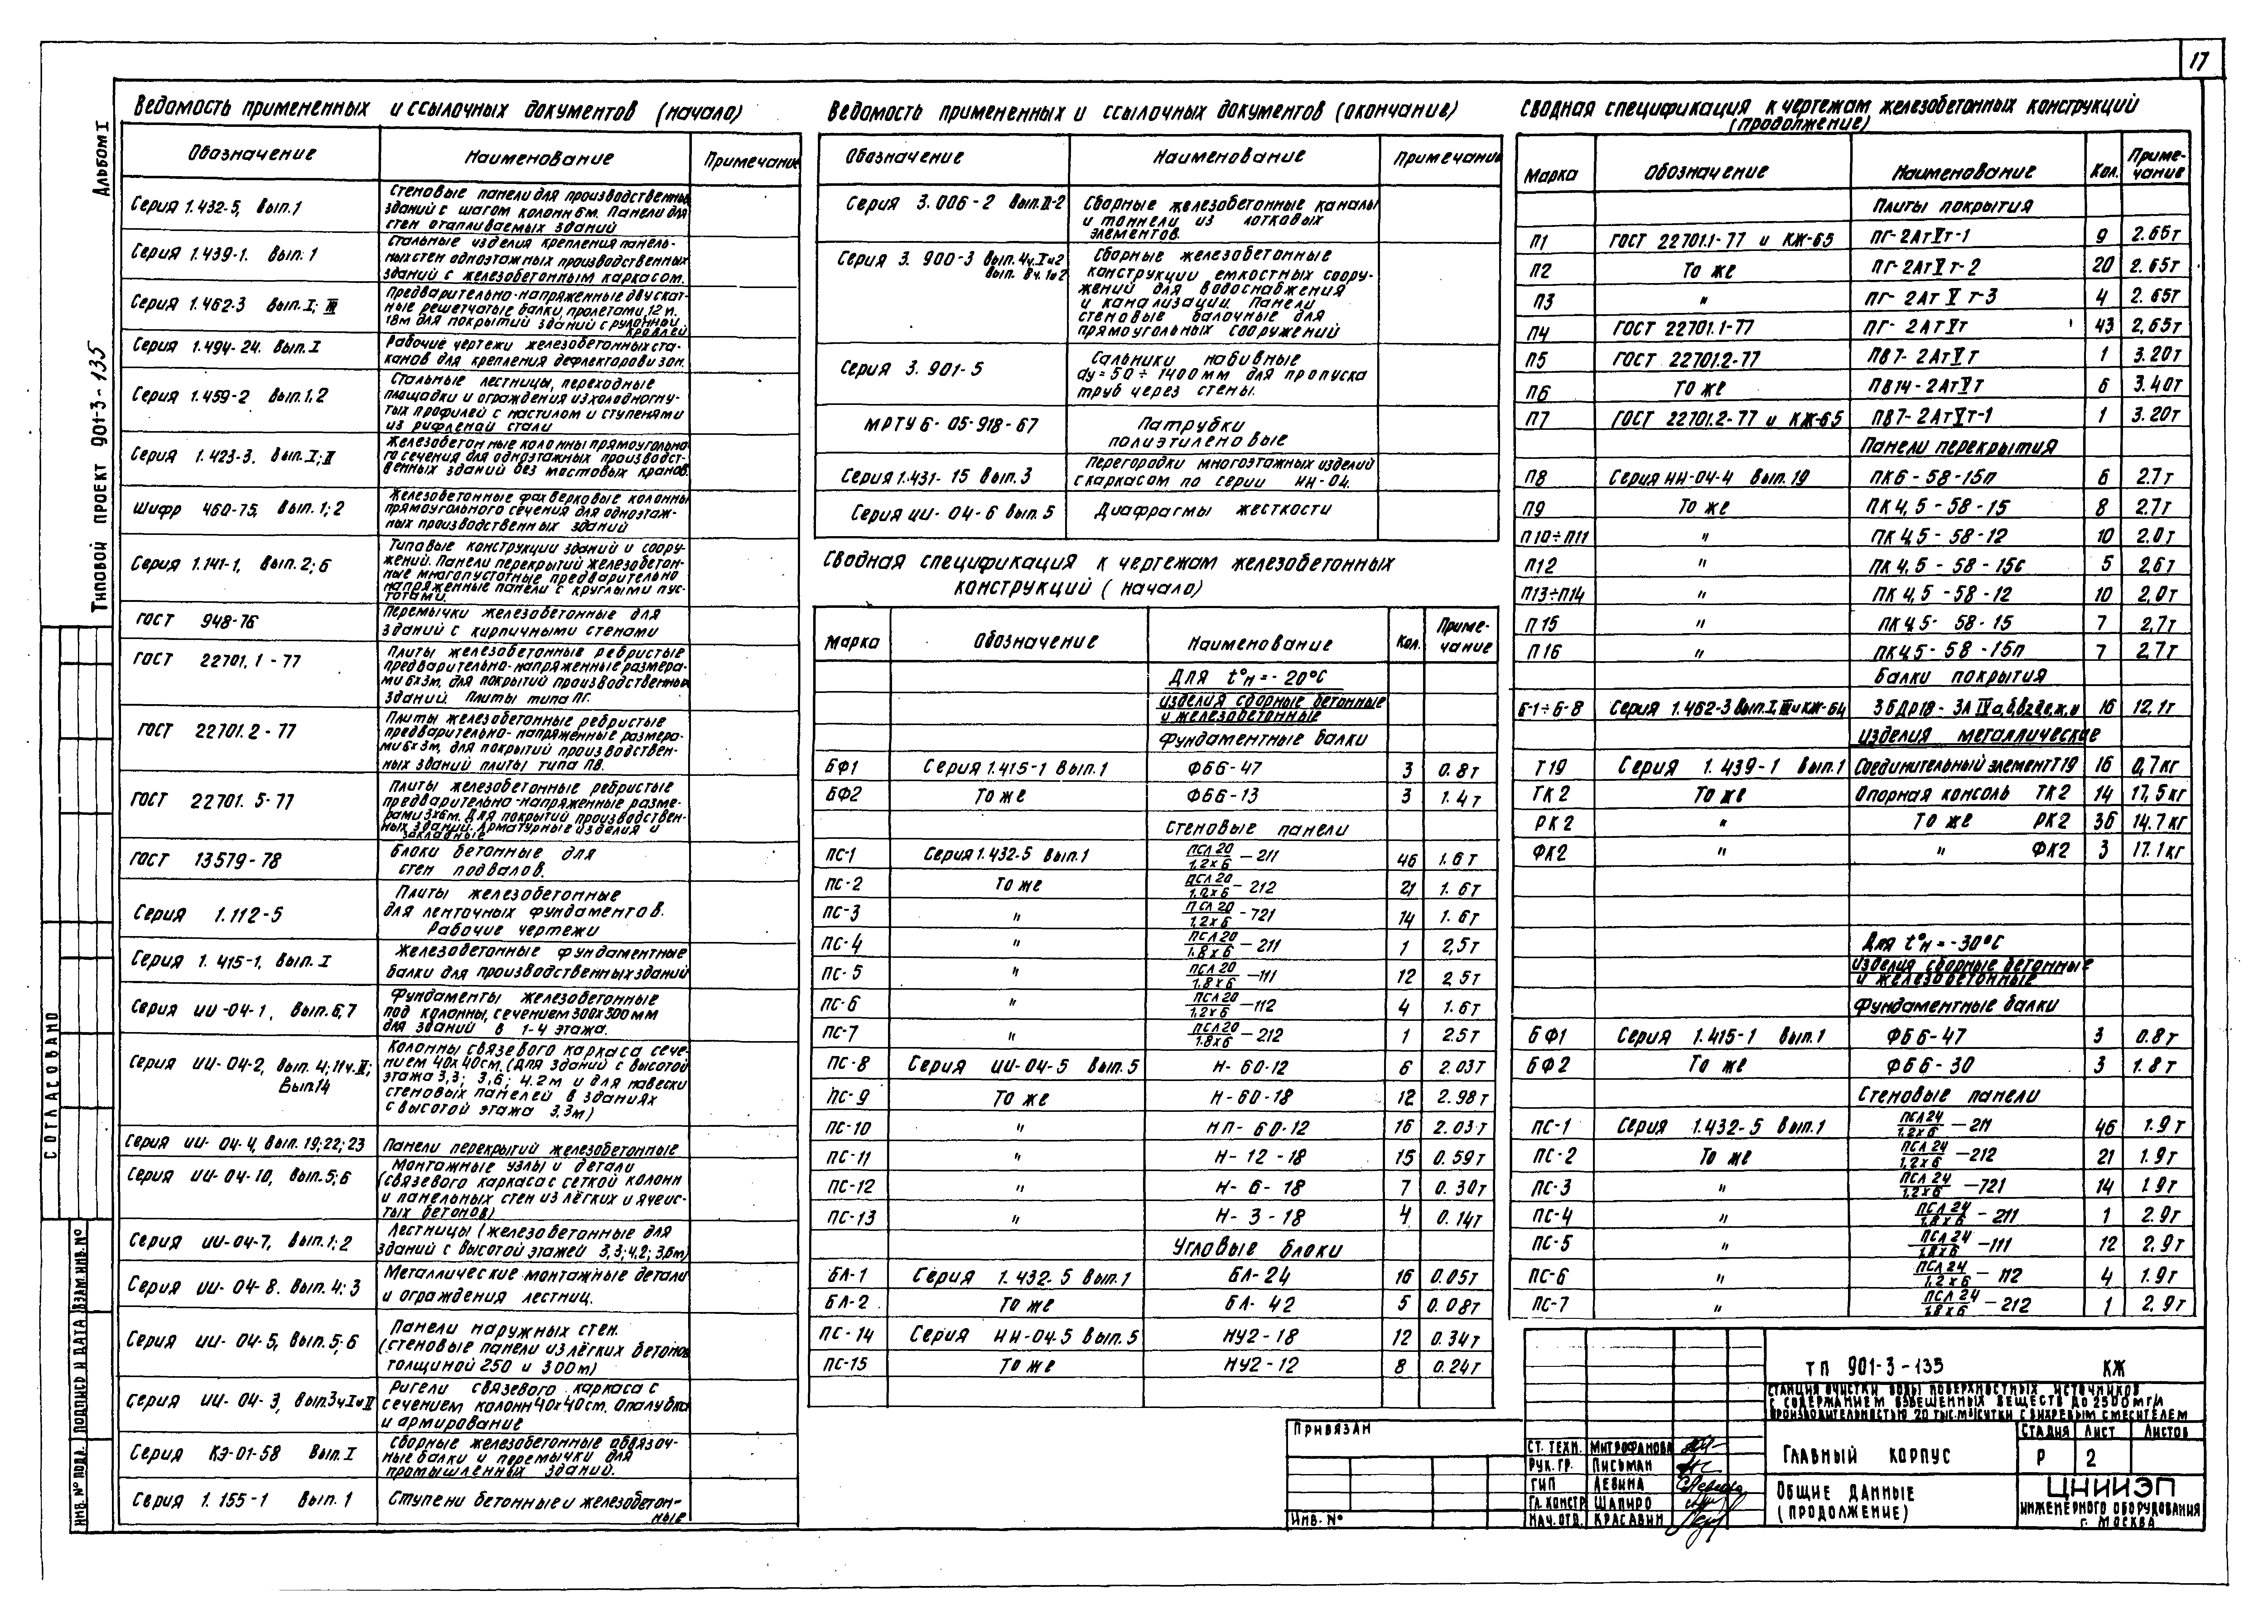 17
Альбом I
Типовой проект 901-3-135
Ведомость примененных и ссылочных документов (начало)
Обозначение Наименование Примечание
Серия 1.432-5, Вып.1 Стеновые панели для производственных
зданий с шагом колонн 6м. Панели для
стен отапливаемых зданий
Серия 1.439-1. Вып. 1 Стальные изделия крепления панель-
ных стен одноэтажных производственных
зданий с железобетонным каркасом.
Серия 1.462-3 Вып. I; III Предварительно-напряженные двускат-
ные решетчатые балки, пролетами, 12 и.
18м для покрытий зданий с рулонной
кровлей
Серия 1.494-24. Вып. I Рабочие чертежи железобетонных ста-
канов для крепления дефлекторов и зон.
Серия 1.459-2 Вып.1,2 Стальные лестницы, переходные
площадки и ограждения из холодногну-
тых профилей с настилом и ступенями
из рифленой стали
Серия 1.423-3. Вып. I; II Железобетонные колонны прямоугольно-
го сечения для одноэтажных производст-
венных зданий без мостовых кранов.
Шифр 460-75, Вып. 1; 2 Железобетонные фахверковые колонны
прямоугольного сечения для одноэтаж-
ных производственных зданий
Серия 1.141-1, Вып. 2; 6 Типовые конструкции зданий и соору-
жений. Панели перекрытий железобетон-
ные многопустотные предварительно
напряженные панели с круглыми пус-
тотами.
ГОСТ 948-76 Перемычки железобетонные для
зданий с кирпичными стенами
ГОСТ 22701.1-77 Плиты железобетонные ребристые
предварительно-напряженные размера-
ми 6х3м, для покрытий производственных
зданий. Плиты типа ПГ.
ГОСТ 22701.2-77 Плиты железобетонные ребристые
предварительно-напряженные размера-
ми 6х3м, для покрытий производствен-
ных зданий плиты типа ПВ.
ГОСТ 22701.5-77 Плиты железобетонные ребристые
предварительно-напряженные разме-
рами 3х6м. Для покрытий производствен-
ных зданий. Арматурные изделия и
закладные
ГОСТ 13579-78 Блоки бетонные для
стен подвалов.
Серия 1.112-5 Плиты железобетонные
для ленточных фундаментов.
Рабочие чертежи
Серия 1.415-1, Вып. I Железобетонные фундаментные
балки для производственных зданий
Серия ИИ-04-1, Вып.6,7 Фундаменты железобетонные
под колонны, сечением 300х300 мм
для зданий в 1-4 этажа.
Серия ИИ-04-2, Вып. 4; 11 ч.II; Вып.14 Колонны связевого каркаса сече-
нием 40х40см, (для зданий с высотой
этажа 3,3; 3,6; 4.2м и для навески
стеновых панелей в зданиях
с высотой этажа 3,3м)
Серия ИИ-04-4, Вып. 19; 22; 23 Панели перекрытий железобетонные
Серия ИИ-04-10, Вып.5;6 Монтажные узлы и детали
(связевого каркаса с сеткой колонн
и панельных стен из лёгких и ячеис-
тых бетонов)
Серия ИИ-04-7, Вып.1; 2 Лестницы (железобетонные для
зданий с высотой этажей 3,3; 4,2; 3,6м)
Серия ИИ-04-8. Вып. 4; 3 Металлические монтажные детали
и ограждения лестниц.
Серия ИИ-04-5, Вып.5;6 Панели наружных стен.
(стеновые панели из лёгких бетонов
толщиной 250 и 300м)
Серия ИИ-04-3, Вып3ч I и II Ригели связевого каркаса с
сечением колонн 40х40см. Опалубка
и армирование
Серия КЭ-01-58 Вып. I Сборные железобетонные обвязоч-
ные балки и перемычки для
промышленных зданий.
Серия 1.155-1 Вып. 1 Ступени бетонные и железобетон-
ные
Ведомость примененных и ссылочных документов (окончание)
Обозначение Наименование Примечание
Серия 3.006-2 Вып.II-2 Сборные железобетонные каналы
и тоннели из лотковых
элементов.
Серия 3.900-3 Вып.4ч.I и 2 Сборные железобетонные
конструкции емкостных соору-
жений для водоснабжения
и канализации. Панели
стеновые балочные для
прямоугольных сооружений
Серия 3.901-5 Сальники набивные
dу = 50 ÷ 1400 мм для пропуска
труб через стены.
МРТУ 6-05-918-67 Патрубки
полиэтиленовые
Серия 1.431-15 Вып.3 Перегородки многоэтажных изделий
с каркасом по серии ИИ-04.
Серия ИИ-04-6 Вып.5 Диафрагмы жесткости
Сводная спецификация к чертежам железобетонных
конструкций (начало)
Марка Обозначение Наименование Кол. Приме-
чание
Для t°н = -20°С
Изделия сборные бетонные
и железобетонные
Фундаментные балки
БФ1 Серия 1.415-1 Вып.1 ФБ6-47 3 0.8т
БФ2 То же ФБ6-13 3 1.4т
Стеновые панели
ПС-1 Серия 1.432-5 Вып.1 ПСЛ20/1.2х6-211 46 1.6т
ПС-2 То же ПСЛ20/1.2х6-212 21 1.6т
ПС-3 " ПСЛ20/1.2х6-721 14 1.6т
ПС-4 " ПСЛ20/1.8х6-211 1 2,5т
ПС-5 " ПСЛ20/1.8х6-111 12 2,5т
ПС-6 " ПСЛ20/1.2х6-112 4 1.6т
ПС-7 " ПСЛ20/1.8х6-212 1 2.5т
ПС-8 Серия ИИ-04-5 Вып.5 Н-60-12 6 2.03т
ПС-9 То же Н-60-18 12 2.98т
ПС-10 " НП-60-12 16 2.03т
ПС-11 " Н-12-18 15 0.59т
ПС-12 " Н-6-18 7 0.30т
ПС-13 " Н-3-18 4 0.14т
Угловые блоки
БЛ-1 Серия 1.432-5 Вып.1 БЛ-24 16 0.05т
БЛ-2 То же БЛ-42 5 0.08т
ПС-14 Серия ИИ-04-5 Вып.5 НУ2-18 12 0.34т
ПС-15 То же НУ2-12 8 0.24т
Сводная спецификация к чертежам железобетонных конструкций
(продолжение)
Марка Обозначение Наименование Кол. Приме-
чание
Плиты покрытия
П1 ГОСТ 22701.1-77 и КЖ-65 ПГ-2АтVт-1 9 2.65т
П2 То же ПГ-2АтVт-2 20 2.65т
П3 " ПГ-2АтVт-3 4 2.65т
П4 ГОСТ 22701.1-77 ПГ-2АтVт 43 2,65т
П5 ГОСТ 22701.2-77 ПВ7-2АтVт 1 3.20т
П6 То же ПВ14-2АтVт 6 3.40т
П7 ГОСТ 22701.2-77 и КЖ-65 ПВ7-2АтVт-1 1 3.20т
Панели перекрытия
П8 Серия ИИ-04-4 Вып.19 ПК6-58-15п 6 2.7т
П9 То же ПК4,5-58-15 8 2.7т
П10÷П11 " ПК4,5-58-12 10 2.0т
П12 " ПК4,5-58-15с 5 2,6т
П13÷П14 " ПК4,5-58-12 10 2,0т
П15 " ПК4,5-58-15 7 2,7т
П16 " ПК4,5-58-15п 7 2,7т
Балки покрытия
Б-1÷Б-8 Серия 1.462-3 Вып.I, III и КЖ-64 16 12,1т
Изделия металлические
Т19 Серия 1.439-1 Вып.1 Соединительный элемент Т19 16 0,7кг
ТК2 То же Опорная консоль ТК2 14 17,5кг
РК2 " То же РК2 36 14.7кг
ФК2 " " ФК2 3 17.1кг
Для t°н = -30°С
Изделия сборные бетонные
и железобетонные
Фундаментные балки
БФ1 Серия 1.415-1 Вып.1 ФБ6-47 3 0.8т
БФ2 То же ФБ6-30 3 1.8т
Стеновые панели
ПС-1 Серия 1.432-5 Вып.1 ПСЛ24/1.2х6-211 46 1.9т
ПС-2 То же ПСЛ24/1.2х6-212 21 1.9т
ПС-3 " ПСЛ24/1.2х6-721 14 1.9т
ПС-4 " ПСЛ24/1.8х6-211 1 2.9т
ПС-5 " ПСЛ24/1.8х6-111 12 2.9т
ПС-6 " ПСЛ24/1.2х6-112 4 1.9т
ПС-7 " ПСЛ24/1.8х6-212 1 2.9т
ТП 901-3-135 КЖ
Станция очистки воды поверхностных источников
с содержанием взвешенных веществ до 2500 мг/л
производительностью 20 тыс.м³/сутки с вихревым смесителем
Привязан
Инв. №
Ст. техн. Митрофанова
Рук. гр. Письман
ГИП Левина
Гл. констр Шапиро
Нач. отд. Красавин
Главный корпус
Стадия Лист Листов
Р 2
Общие данные
(продолжение)
ЦНИИЭП
инженерного оборудования
г. Москва
Согласовано
Взам. инв. №
Подпись и дата
Инв. № подл.